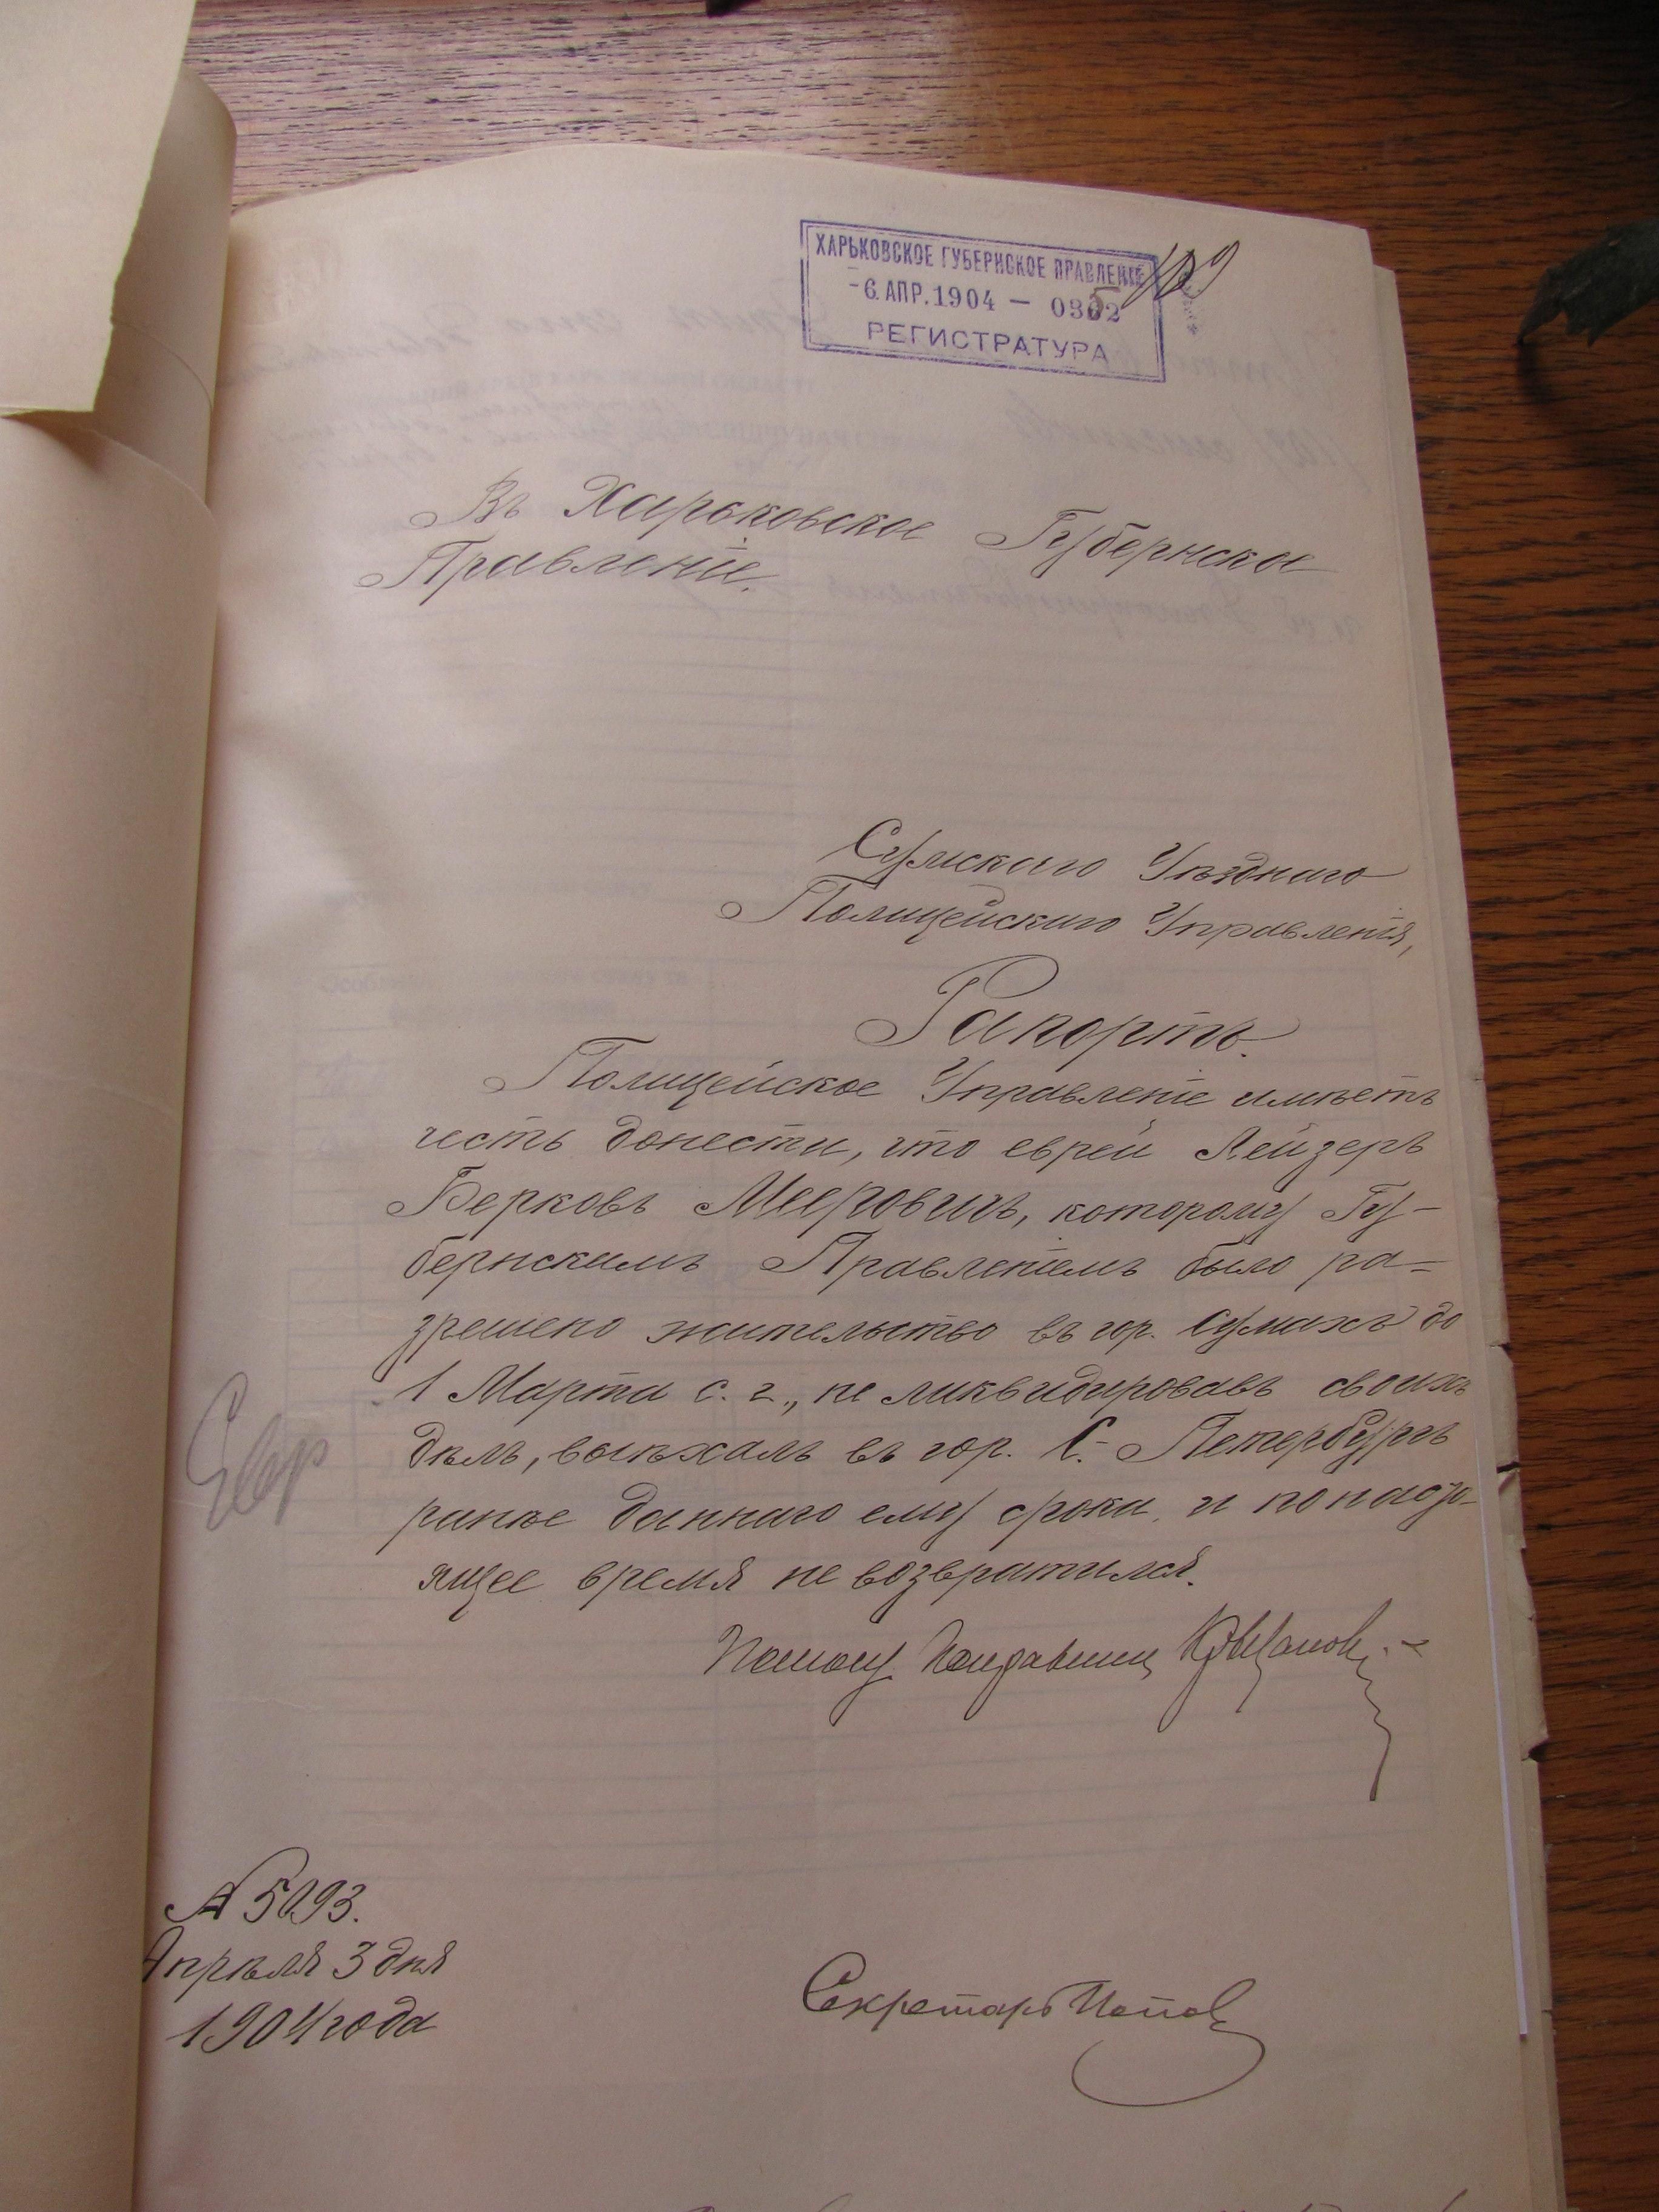 ХАРЬКОВСКОЕ ГУБЕРНСКОЕ ПРАВЛЕНІЕ
-6 АПР. 1904 —
РЕГИСТРАТУРА
Въ Харьковское Губернское
Правленіе.
Сумскаго Уѣзднаго
Полицейскаго Управленія,
Рапортъ.
Полицейское Управленіе имѣетъ
честь донести, что еврей Лейзеръ
Берковъ Мееровичъ, которому Гу-
бернскимъ Правленіемъ было ра=
зрешено жительство въ гор. Сумахъ до
1 Марта с. г., не ликвидировавъ своихъ
дѣлъ, выѣхалъ въ гор. С.-Петербургъ
ранѣе даннаго ему срока и по насто-
ящее время не возвратился.
Евр
№ 5093.
Апрѣля 3 дня
1904 года
Секретарь Попов